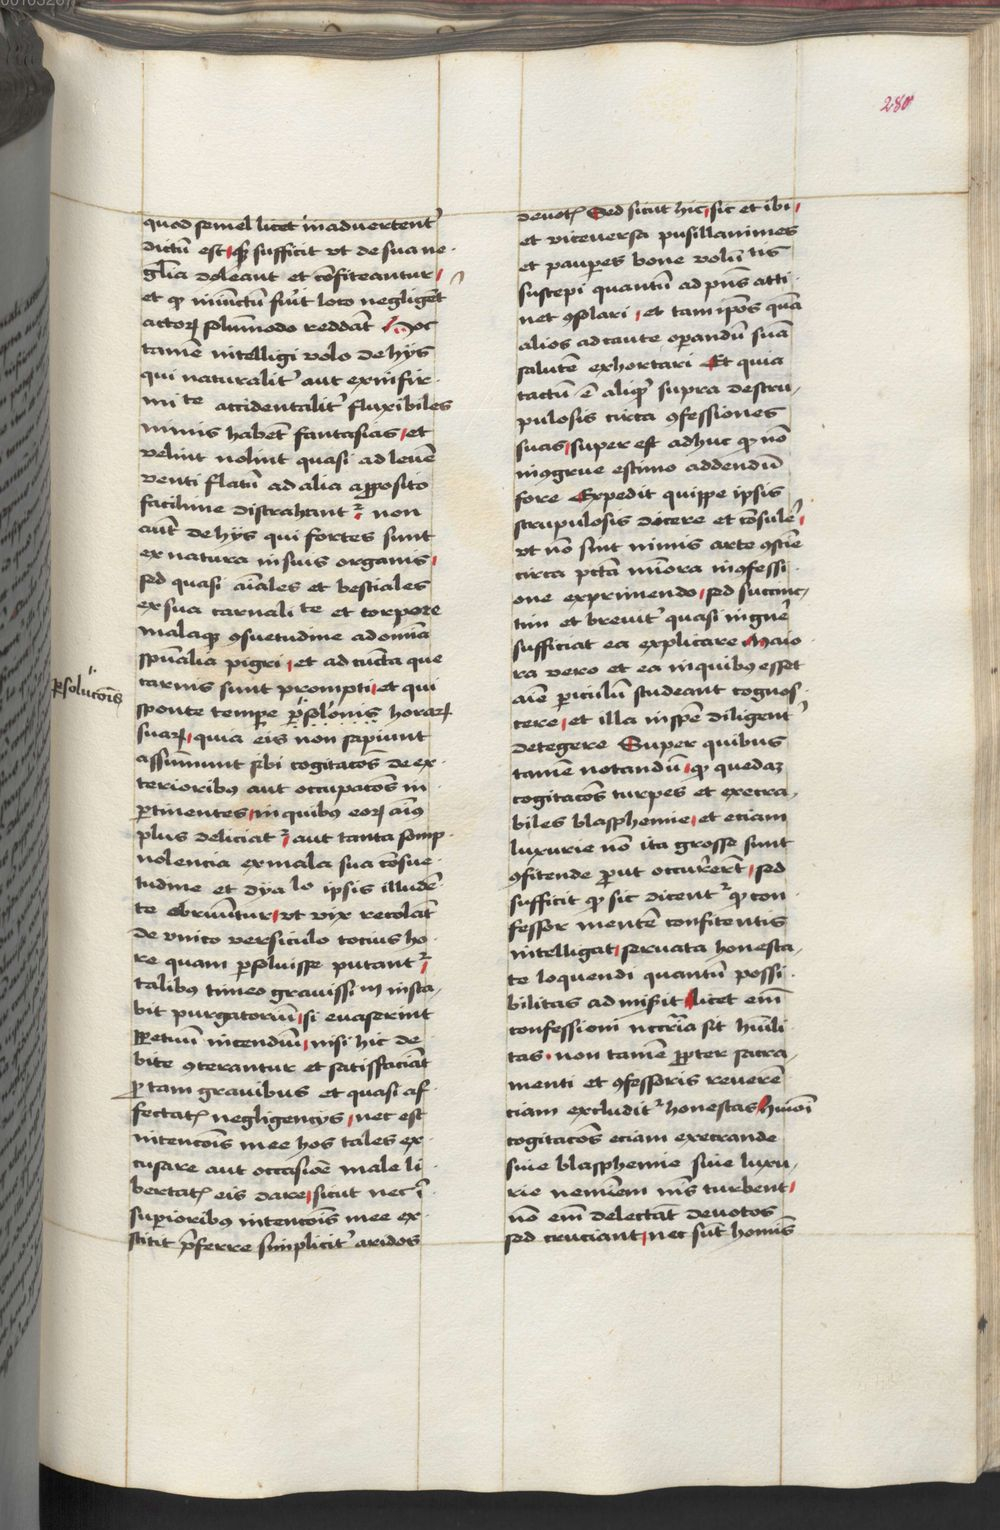 280
quod semel licet inadvertent᷑
dictū est qꝫ sufficit vt de sua ne
gl̄ia doleant et cōfiteantur
et qꝫ iniūctū fu᷑it loco negligēt
actoꝝ solūmodo reddāt Hoc
tamē intelligi volo de hijs
qui naturalit᷑ aut ex infir
mi te accidentalit᷑ fluxibiles
nimis habēt fantasias et
velint nolint quasi ad leuē
venti flatū ad alia a ꝓposito
facilime distrahant᷑ non
aūt de hijs qui fortes sunt
ex natura in suis organis
sed quasi aīales et bestiales
ex sua carnali te et torpore
malaqꝫ ꝯsuetudine ad omīa
spūalia pigri et ad cūcta que
carnis sunt prompti et qui
sponte tempe ꝑsolōnis horaꝝ
ꝑsolucōis
suaꝝ quia eis non sapiunt
assūmunt sibi cogitacōs de ex
terioribꝰ aut occupacōs in
ꝑtinentes in quibꝰ eoꝝ aīꝰ
plus deliciat᷑ aut tanta somp
nolencia ex mala sua cōsue
tudine et dya lo ipsis illudē
te obruūtur vt vix recolāt
de vnico versiculo tocius ho
re quam ꝑsoluisse putant᷑
talibꝰ timeo grauissi m insta
bit purgatoriū si euaserint
ꝑpetuū incendiū nisi hic de
bite ꝯterantur et satisfaciāt
ꝑ tam grauibus et quasi af
fectatꝭ negligencijs nec est
intencōis mee hos tales ex
cusare aut occasiōē male li
bertatꝭ eis dare sicut nec ī
supioribꝰ intencōis mee ex
stitit p̄ferre simplicit᷑ aridos
deuotꝭ Sed sicut hic sic et ibi
et viceuersa pusillanimes
et paupes bone volū tis
suscepi quantū ad p̄ns atti
net ꝯsolari et tam ip̄os quā
alios ad caute oꝑandū suā
salutē exhortari Et quia
tactū ē aliqꝫ supra de scru
pulosis circa ꝯfessiones
suas super est adhuc qꝫ nō
inꝯgrue estimo addendū
fore Expedit quippe ipsis
scrupulosis dicere et cōsule᷑
vt nō sint nimis arte ꝯsciē
circa pctā minora in ꝯfessi
one exprimendo sed succinc
tim et breuit᷑ quasi in gne᷑
sufficiat ea explicare Maio
ra vero et ea in quibꝰ esset
aīe ꝑiculū studeant cognos
cere et illa in spēe diligent᷑
detegere Super quibus
tamē notandū qꝫ quedaꝫ
cogitacōs turpes et execra
biles blasphemie et eciam
luxurie nō ita grosse sunt
ꝯfitende ꝓut occurrerēt sed
sufficit qꝫ sic dicent᷑ qꝫ con
fessor mentē confitentis
intelligat seruata honesta
te loquendi quantū possi
bilitas admisit licet eī
confessioni nccr̄ia sit hūili
tas non tamē ꝓpter sacra
menti et ꝯfessoris reuerē
ciam excludit᷑ honestas
cogitacōs eciam execrande
siue blasphemie siue luxu
rie neminem nīs turbent
nō eī delectat deuotos
sed cruciant nec sūt homīs